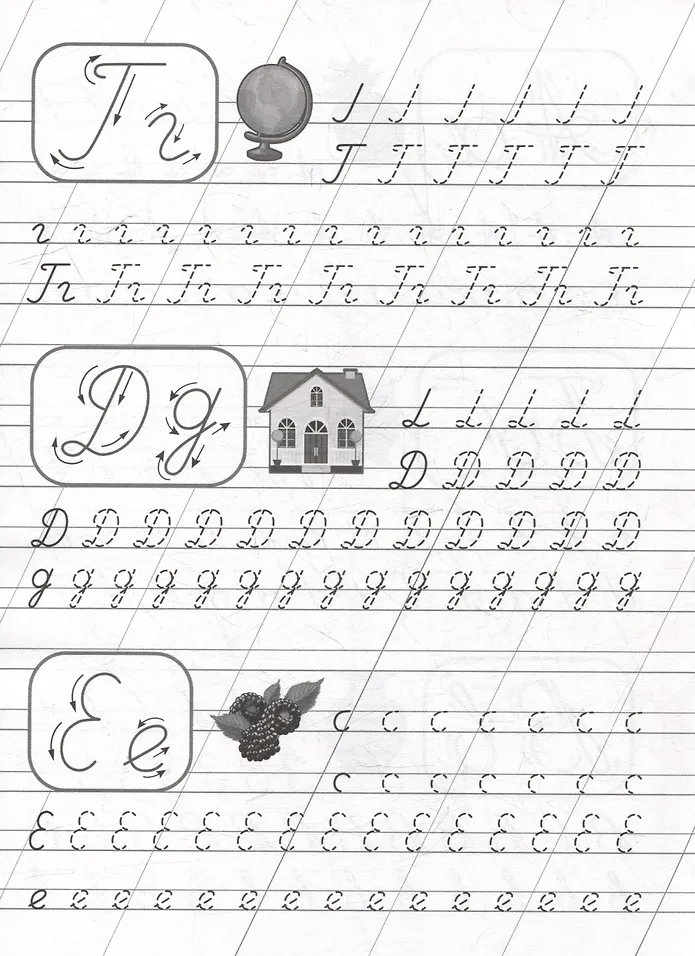 Г г
Г Г Г Г Г Г
г г г г г г г г г г г г г г г
Гг Гг Гг Гг Гг Гг Гг Гг Гг
Д д
Д Д Д Д Д
Д Д Д Д Д Д Д Д Д Д Д Д
д д д д д д д д д д д д д д д
Е е
Е Е Е Е Е Е Е Е Е Е Е Е Е Е Е
е е е е е е е е е е е е е е е